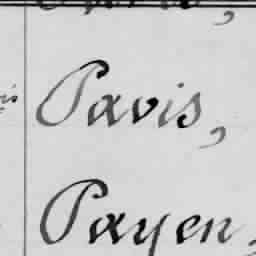 Pavis,
Payen,